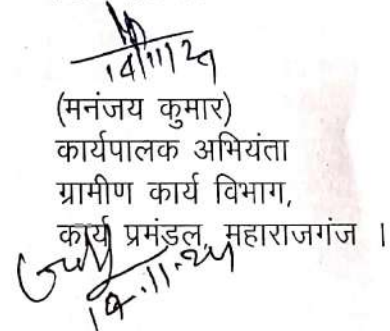 14/11/24
(मनंजय कुमार)
कार्यपालक अभियंता
ग्रामीण कार्य विभाग,
कार्य प्रमंडल, महाराजगंज ।
14.11.24